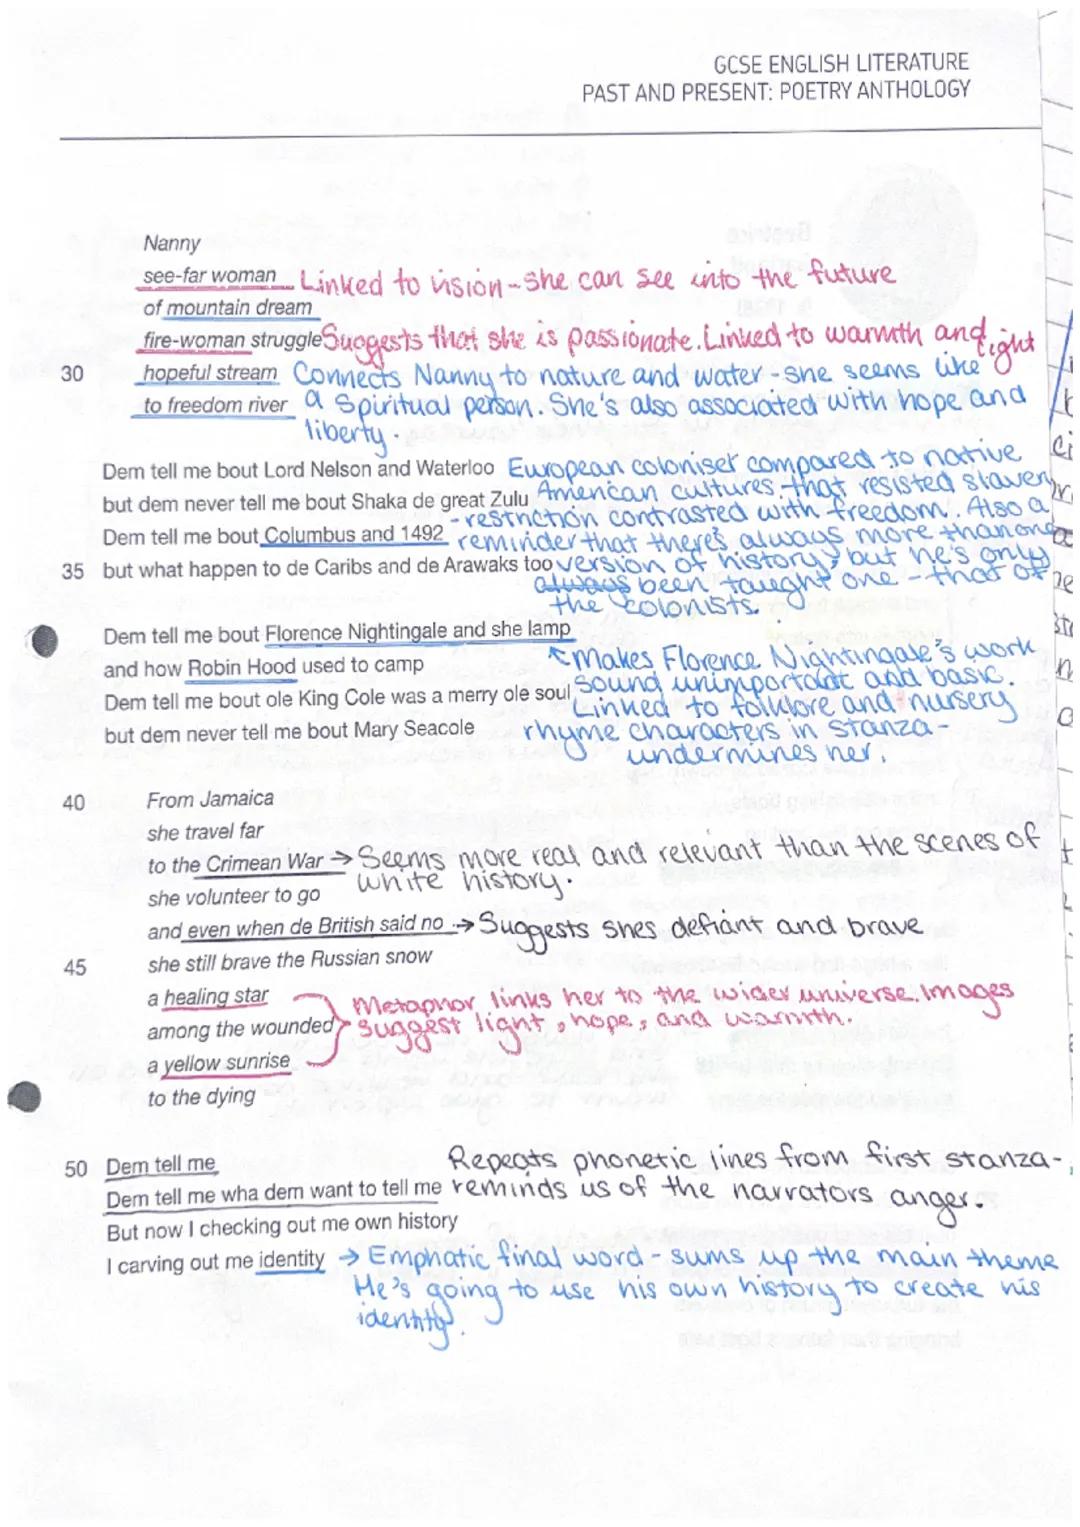 GCSE ENGLISH LITERATURE
PAST AND PRESENT: POETRY ANTHOLOGY
Nanny
see-far woman Linked to vision - she can see into the future
of mountain dream
fire-woman struggle Suggests that she is passionate. Linked to warmth and light
30 hopeful stream Connects Nanny to nature and water - she seems like
to freedom river a spiritual person. She's also associated with hope and
liberty.
Dem tell me bout Lord Nelson and Waterloo European coloniser compared to native
but dem never tell me bout Shaka de great Zulu American cultures that resisted slavery
Dem tell me bout Columbus and 1492 - restriction contrasted with freedom. Also a
reminder that there's always more than one
35 but what happen to de Caribs and de Arawaks too version of history, but he's only
always been taught one - that of
the colonists.
Dem tell me bout Florence Nightingale and she lamp
and how Robin Hood used to camp Makes Florence Nightingale's work
Dem tell me bout ole King Cole was a merry ole soul sound unimportant and basic.
Linked to folklore and nursery
but dem never tell me bout Mary Seacole rhyme characters in stanza -
undermines her.
40 From Jamaica
she travel far
to the Crimean War → Seems more real and relevant than the scenes of
white history.
she volunteer to go
and even when de British said no → Suggests shes defiant and brave
45 she still brave the Russian snow
a healing star Metaphor links her to the wider universe. Images
among the wounded suggest light, hope, and warmth.
a yellow sunrise
to the dying
50 Dem tell me Repeats phonetic lines from first stanza -
Dem tell me wha dem want to tell me reminds us of the narrators anger.
But now I checking out me own history
I carving out me identity → Emphatic final word - sums up the main theme
He's going to use his own history to create his
identity.